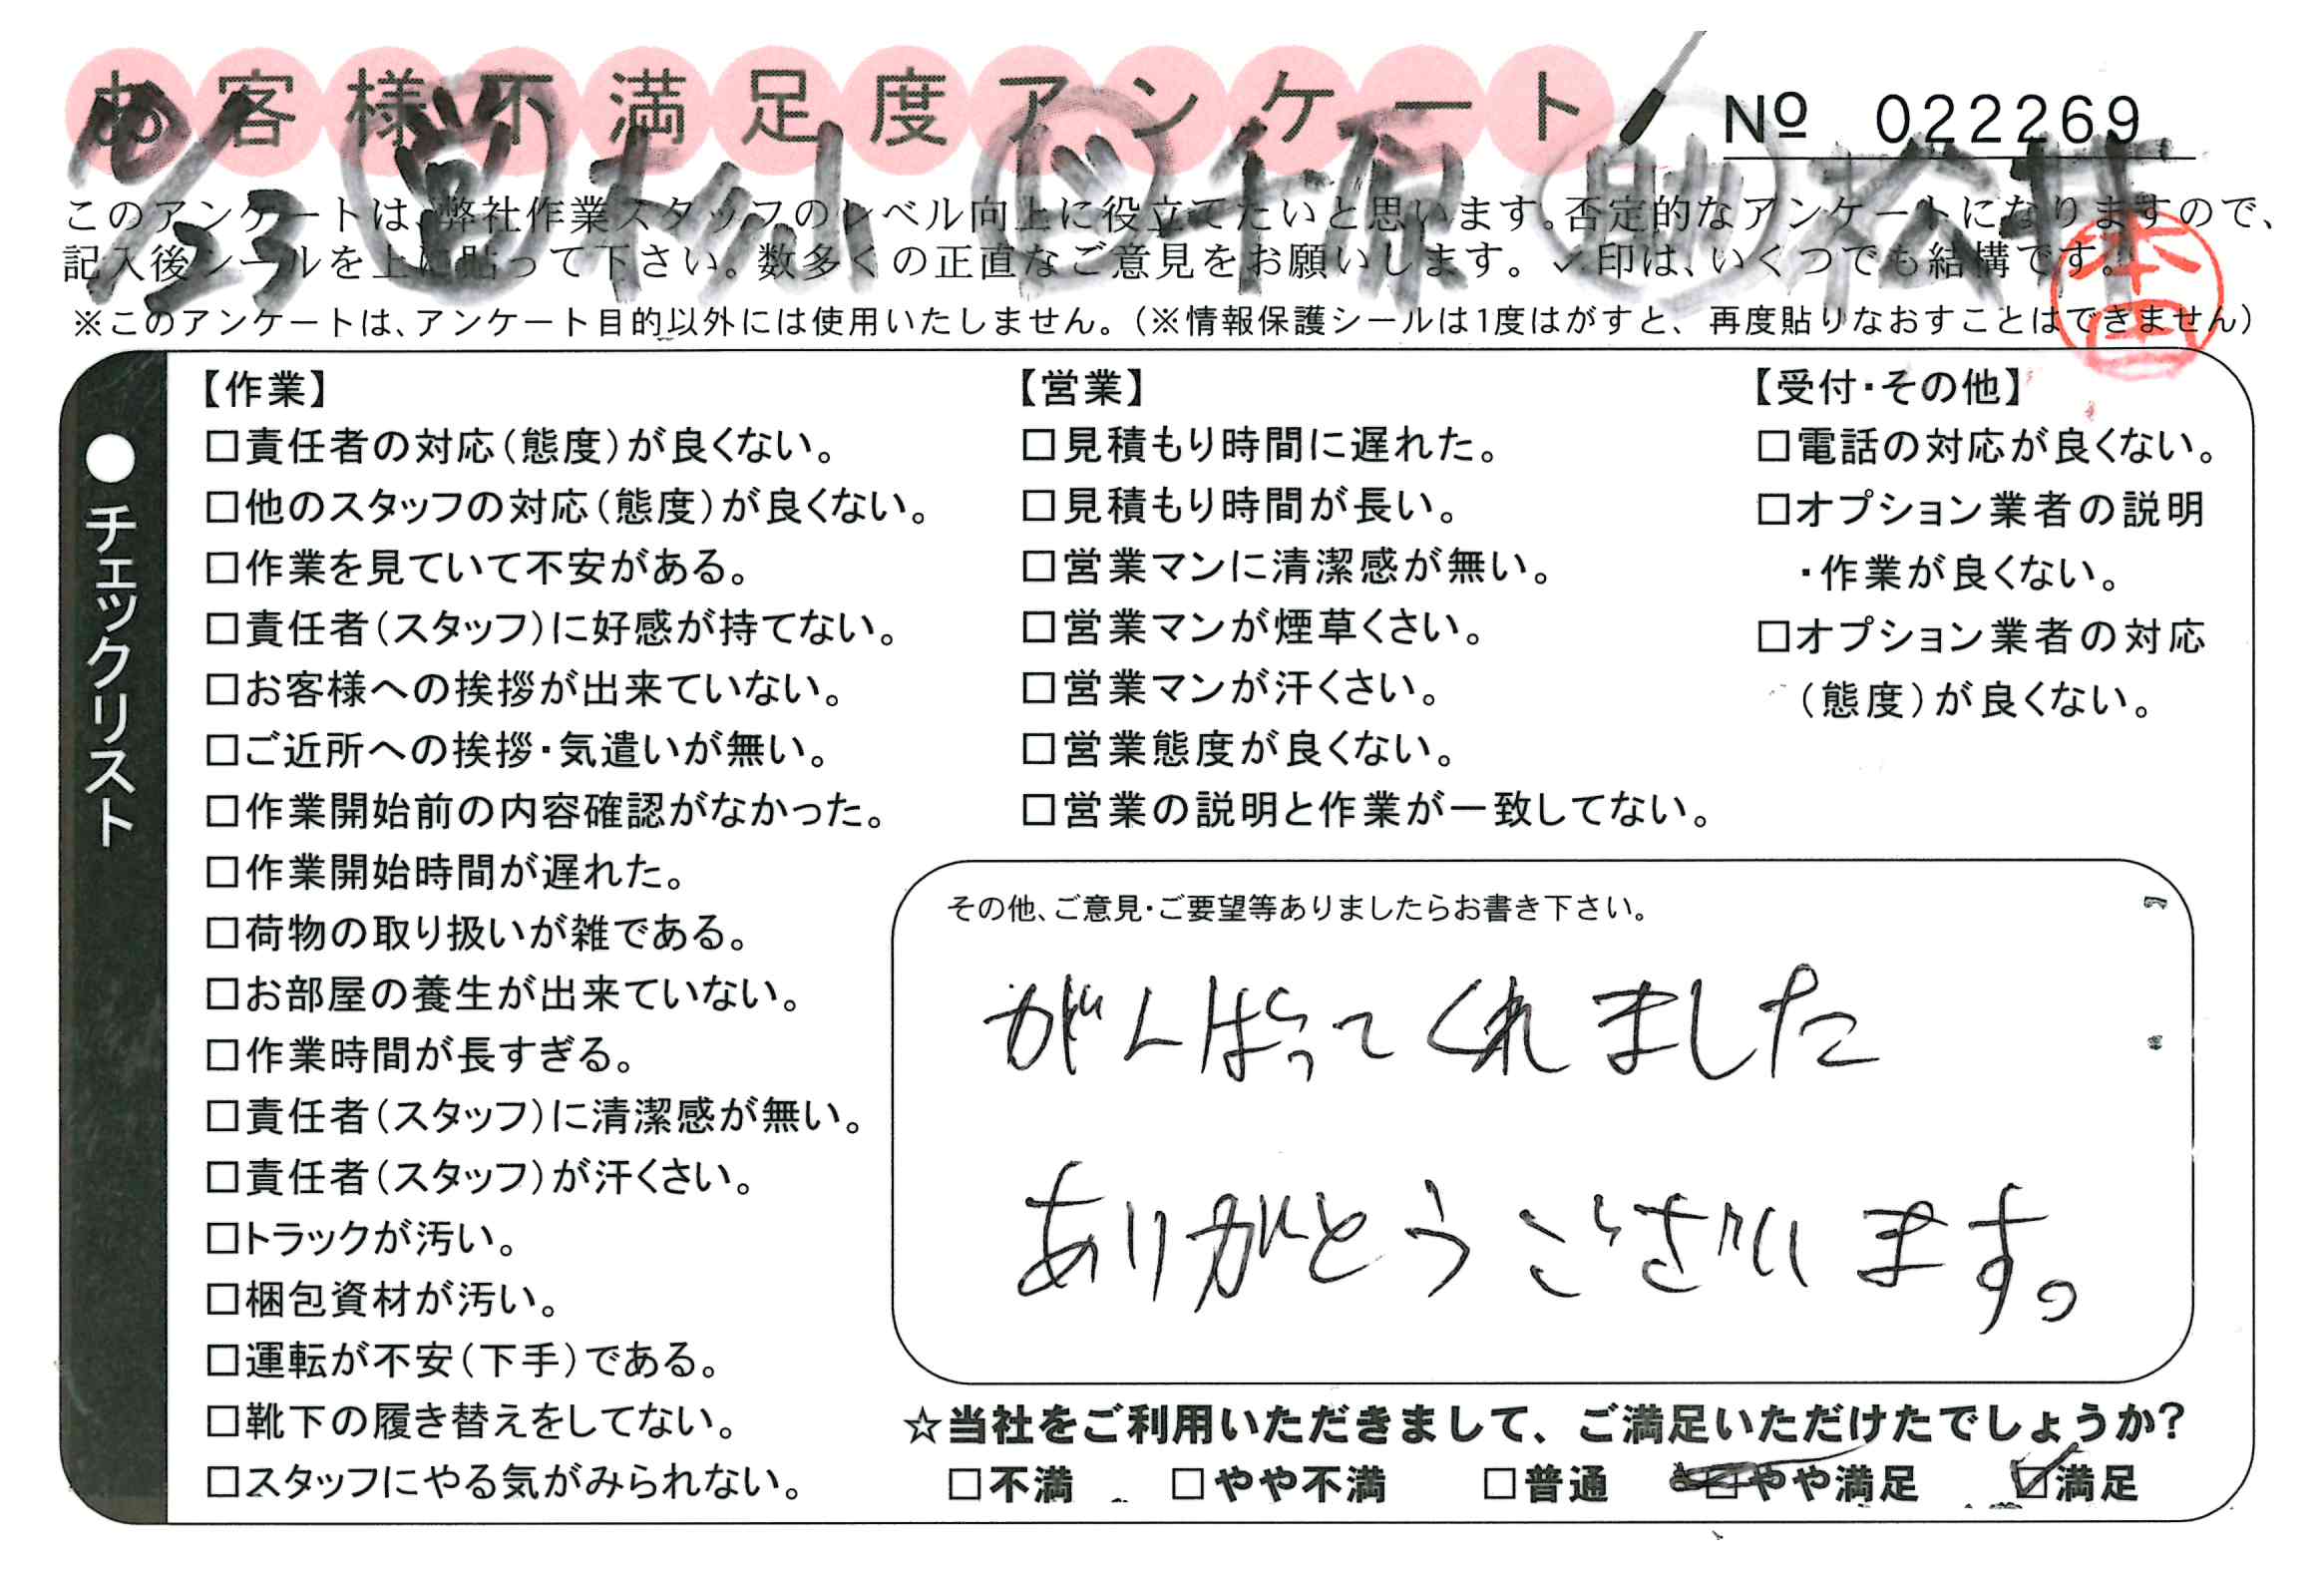 お客様不満足度アンケート
№ 022269
10/23 杉山 千原 助 松井
このアンケートは、弊社作業スタッフのレベル向上に役立てたいと思います。否定的なアンケートになりますので、
記入後シールを上に貼って下さい。数多くの正直なご意見をお願いします。✓印は、いくつでも結構です。
本田
※このアンケートは、アンケート目的以外には使用いたしません。(※情報保護シールは1度はがすと、再度貼りなおすことはできません)
●チェックリスト
【作業】
□責任者の対応(態度)が良くない。
□他のスタッフの対応(態度)が良くない。
□作業を見ていて不安がある。
□責任者(スタッフ)に好感が持てない。
□お客様への挨拶が出来ていない。
□ご近所への挨拶・気遣いが無い。
□作業開始前の内容確認がなかった。
□作業開始時間が遅れた。
□荷物の取り扱いが雑である。
□お部屋の養生が出来ていない。
□作業時間が長すぎる。
□責任者(スタッフ)に清潔感が無い。
□責任者(スタッフ)が汗くさい。
□トラックが汚い。
□梱包資材が汚い。
□運転が不安(下手)である。
□靴下の履き替えをしてない。
□スタッフにやる気がみられない。
【営業】
□見積もり時間に遅れた。
□見積もり時間が長い。
□営業マンに清潔感が無い。
□営業マンが煙草くさい。
□営業マンが汗くさい。
□営業態度が良くない。
□営業の説明と作業が一致してない。
【受付・その他】
□電話の対応が良くない。
□オプション業者の説明
・作業が良くない。
□オプション業者の対応
(態度)が良くない。
その他、ご意見・ご要望等ありましたらお書き下さい。
がんばってくれました
ありがとうございます。
☆当社をご利用いただきまして、ご満足いただけたでしょうか?
□不満 □やや不満 □普通 □やや満足 ☑満足